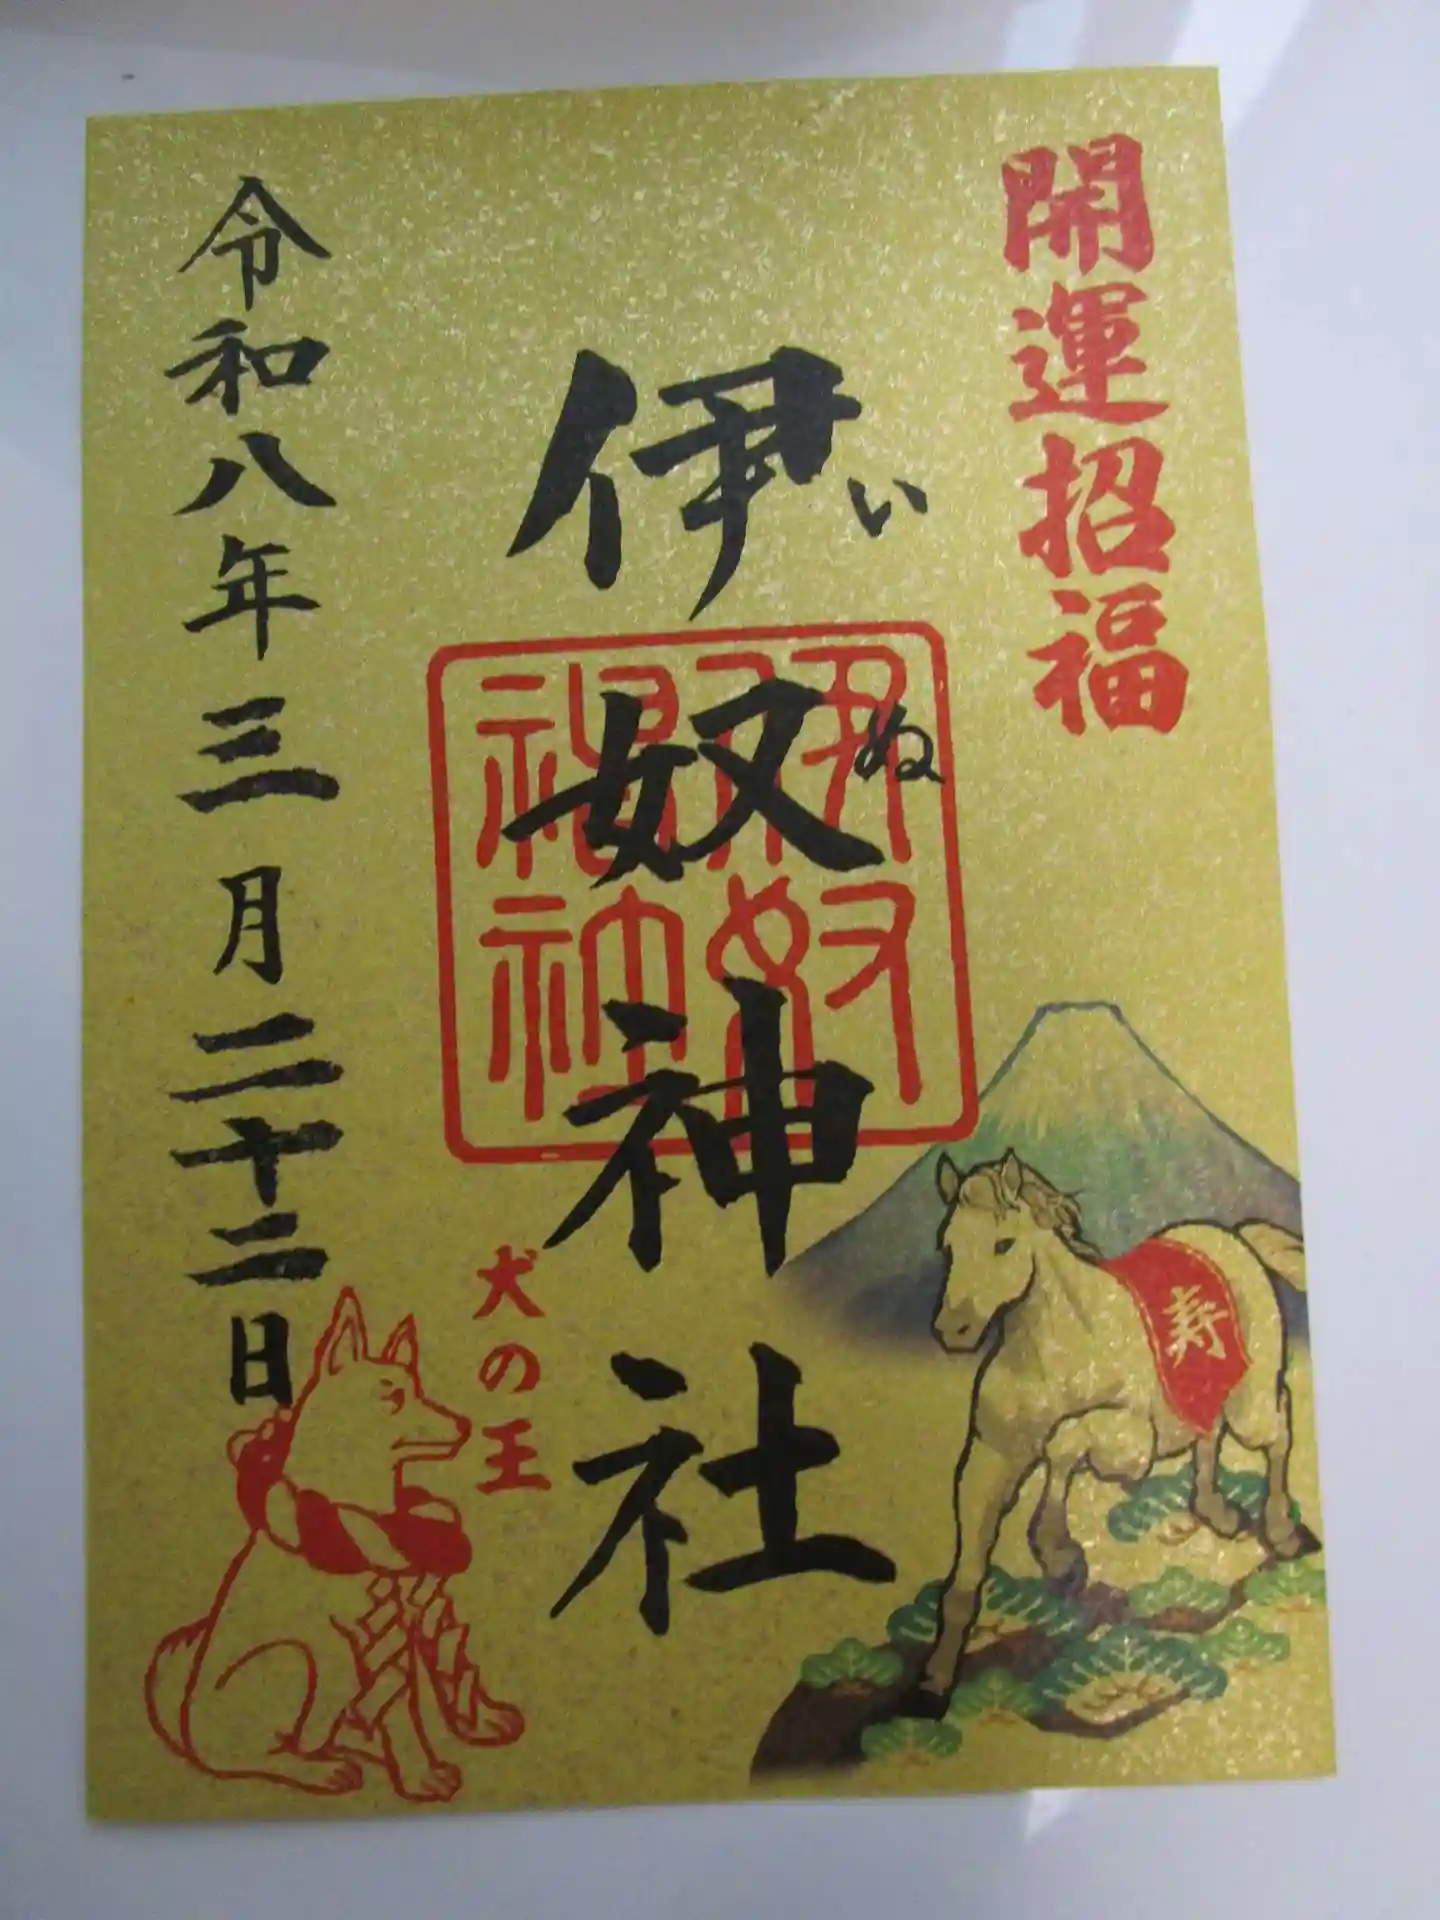 開運招福
伊奴神社
いぬ
伊奴福神社
寿
犬の王
令和八年三月二十二日